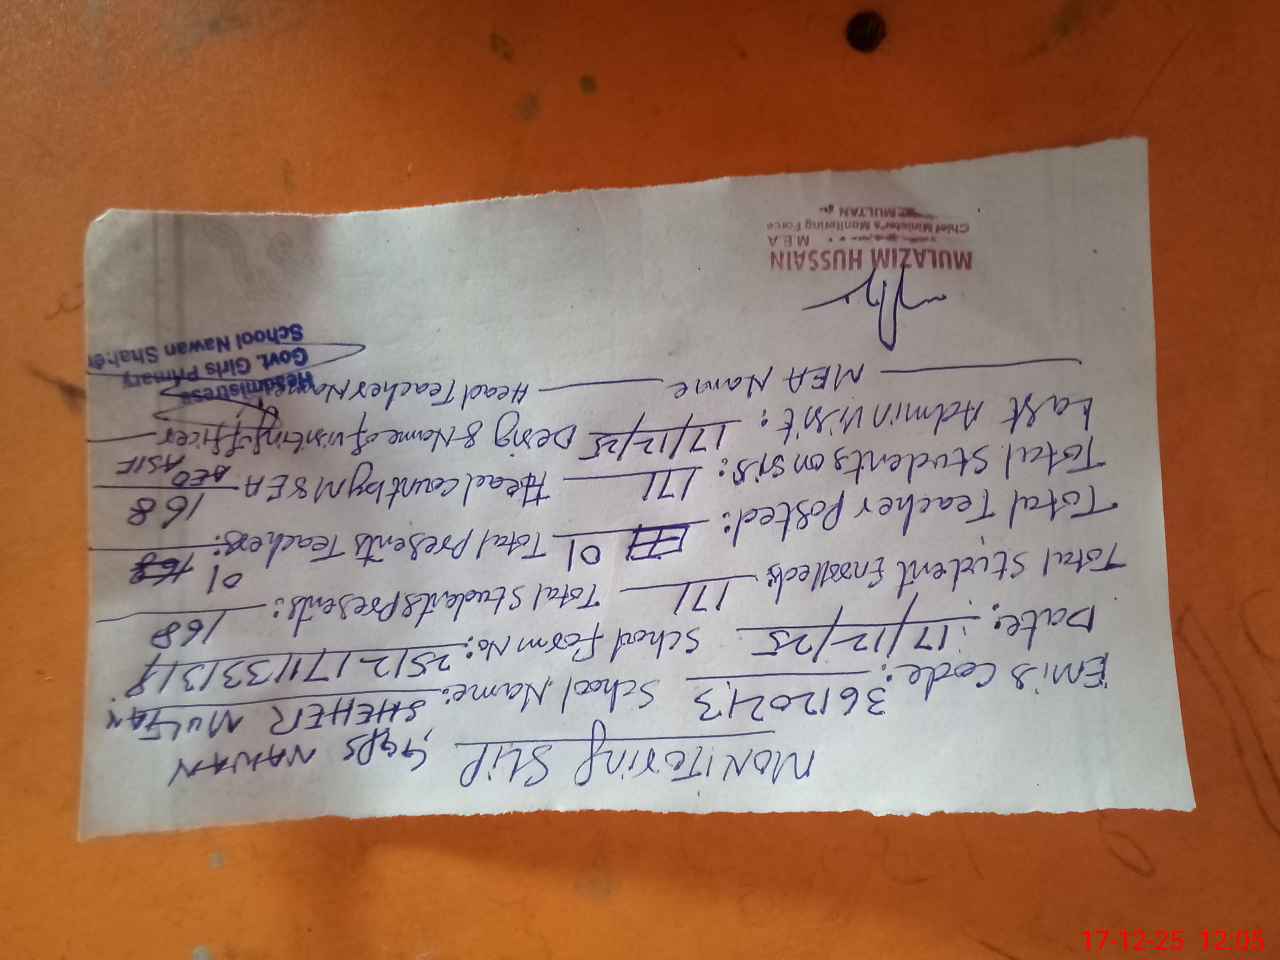 MONITORING SLIP
GGPS NAWAN
Emis Code: 36120213 School Name: SHEHER MULTAN
Date: 17/12/25 School Form No: 2512171133131
Total Student Enrolled: 171 Total Students Presents: 168
Total Teacher Posted: 01 Total Presents Teachers: 01
Total Students on SIS: 171 Head Count by MEA 168
Last Admin Visit: 17/12/25 Desig & Name of visiting officer AEO ASIF
MEA Name Head Teacher Name
Headmistress
Govt. Girls Primary
School Nawan Shaher
MULAZIM HUSSAIN
M E A
Chief Minister's Monitoring Force
MULTAN
17-12-25 12:05